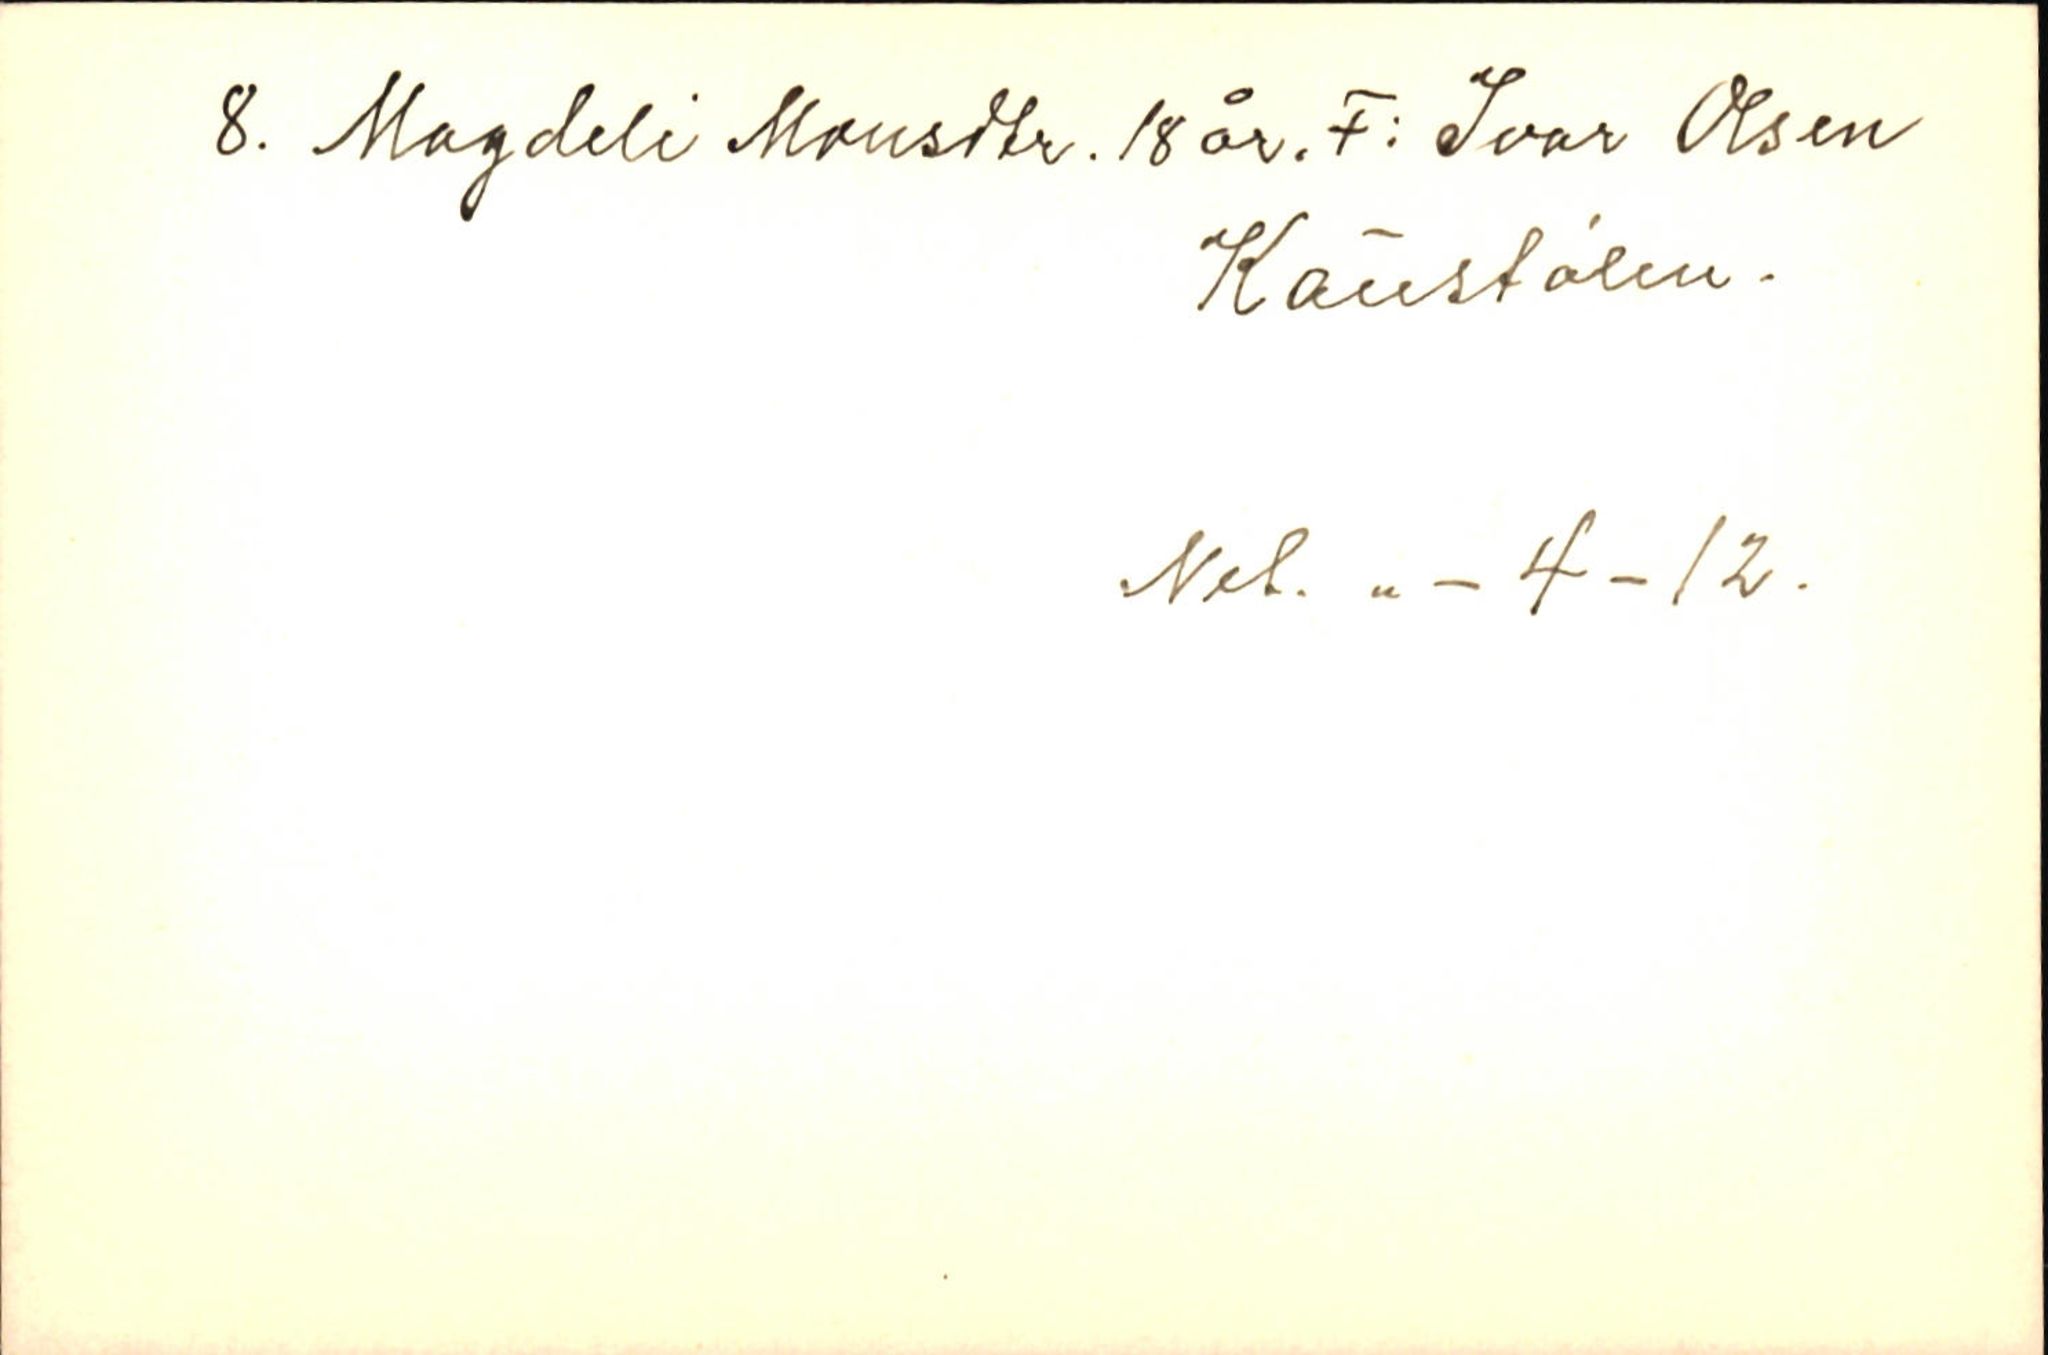 8. Magdeli Monsdtr. 18 år. F: Ivar Olsen
Kaustålen.
Net. " - 4 - 12.